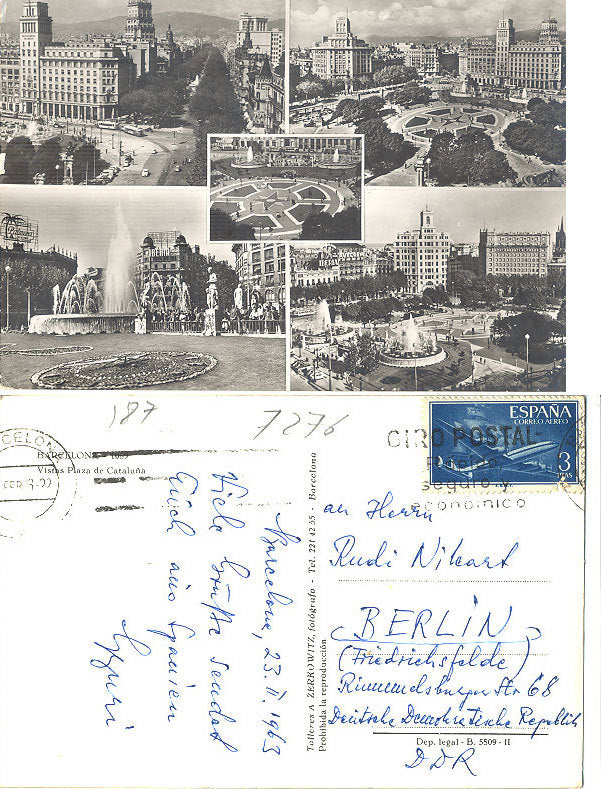 187
7276
BARCELONA - 1039
Vistas Plaza de Cataluña
BARCELONA
GIRO POSTAL
rápido
seguro y
económico
ESPAÑA
CORREO AEREO
3
PTAS
Barcelona, 23.II.1963
Viele Grüße sendet
Euch aus Spanien
Talleres A. ZERKOWITZ, fotógrafo - Tel. 221 42 55 - Barcelona
Prohibida la reproducción
an Herrn
Rudi
BERLIN
(Friedrichsfelde)
Rummelsburger Str 68
Deutsche Demokratische Republik
Dep. legal - B. 5509 - II
DDR